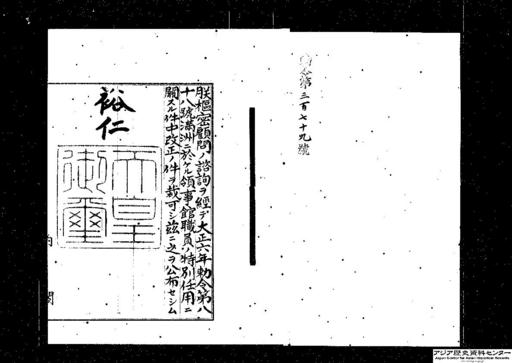 勅令第三百七十九號
朕樞密顧問ノ諮詢ヲ經テ大正六年勅令第八
十八號滿洲ニ於ケル領事館職員ノ特別任用ニ
關スル件中改正ノ件ヲ裁可シ茲ニ之ヲ公布セシム
裕仁
天皇
御璽
内閣
アジア歴史資料センター
Japan Center for Asian Historical Records